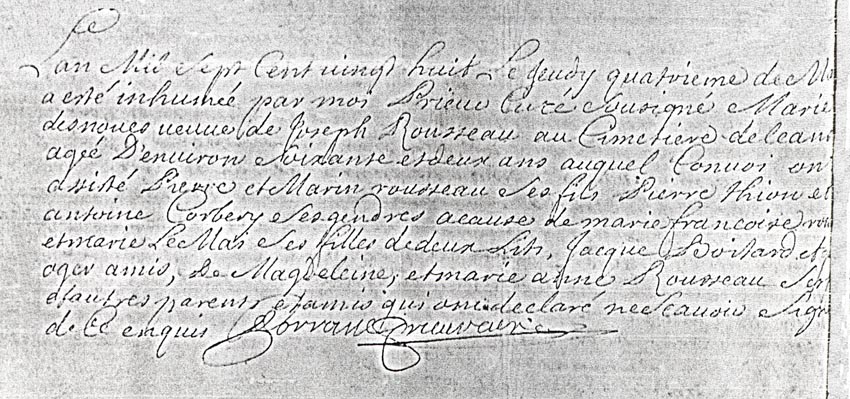 Lan Mil Sept Cent vingt huit Le Jeudy quatrieme de
a esté inhumée par moi Prieur Curé Sousigné Marie
desnoues veuve de Joseph Rousseau au Cimetiere de ceans
agée D'environ Soixante et deux ans auquel Convoi on
assisté Pierre et Marin rousseau Ses fils Pierre thion et
antoine Corbery Ses gendres acause de marie francoise
et marie Le Mas Ses filles de deux Lits, Jacque Boilard et
oger amis, De Magdeleine, et marie anne Rousseau
d'autres parents et amis qui ont declaré ne Scauoir Sig
de ce enquis